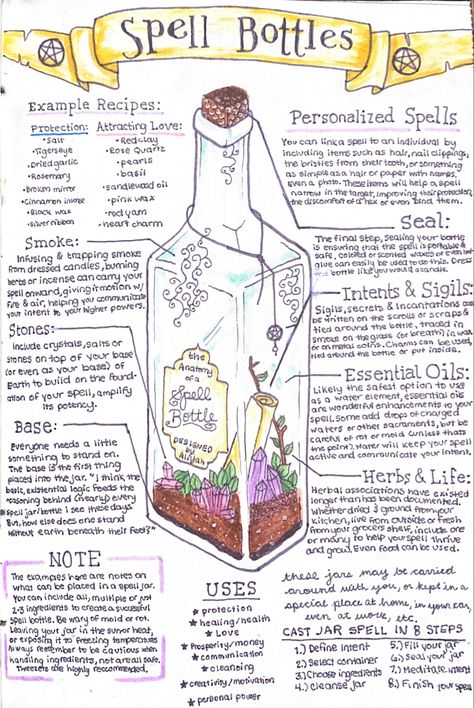 Spell Bottles
Example Recipes:
Protection:
• Salt
• Tigerseye
• Dried garlic
• Rosemary
• Broken mirror
• Cinnamon incense
• Black wax
• Silver ribbon
Attracting Love:
• Red clay
• Rose Quartz
• pearls
• basil
• sandlewood oil
• pink wax
• red yarn
• heart charm
Smoke:
Infusing & trapping smoke
from dressed candles, burning
herbs or incense can carry your
spell onward, giving it motion w/
fire & air, helping you communicate
your intent to your higher powers.
Stones:
Include crystals, salts or
stones on top of your base
(or even as your base) of
Earth to build on the found-
ation of your spell, amplify
its potency.
Base:
Everyone needs a little
something to stand on.
The base is the first thing
placed into the jar. "I think the
basic, existential logic feeds the
reasoning behind (nearly) every
spell jar/bottle I see these days
But, how else does one stand
without earth beneath their feet?"
NOTE
The examples here are notes on
what can be placed in a spell jar.
You can include all, multiple or just
2-3 ingredients to create a successful
spell bottle. Be wary of mold or rot.
Leaving your jar in the sun or heat,
or exposing it to freezing temperatures
Always remember to be cautious when
handling ingredients, not all are safe.
Tweezers are highly recommended.
the
Anatomy
of a
Spell
Bottle
DESIGNED
BY
Aliyah
USES
★ protection
★ healing/health
★ Love
★ Prosperity/money
★ communication
★ cleansing
★ creativity/motivation
★ personal power
Personalized Spells
You can link a spell to an individual by
including items such as hair, nail clippings,
the bristles from their tooth, or something
as simple as a hair or paper with names,
Even a photo. These items will help a spell
narrow in the target, improving their protection,
the discomfort of a hex or even bind them.
Seal:
The final step, sealing your bottle
is ensuring that the spell is portable &
safe, colored or scented waxes or even hot
glue can easily be used to do this. Dress
the bottle like you would a candle.
Intents & Sigils:
Sigils, secrets & incantations can
be written on the scrolls or scraps &
tied around the bottle, traced in
smoke on the glass (or breath), in wax
or on metal coins. Charms can be used,
tied around the bottle or put inside.
Essential Oils:
Likely the safest option to use
as a water element, essential oils
are wonderful enhancements to your
spell. Some add drops of charged
waters or other sacraments, but be
careful of rot or mold (unless thats
the point.) Water will keep your spell
active and communicate your intent.
Herbs & Life:
Herbal associations have existed
longer than has been documented.
Whether dried & ground from your
kitchen, live from outside or fresh
from your grocers shelf, include one
or many to help your spell thrive
and grow. Even food can be used.
these jars may be carried
around with you, or kept in a
special place at home, in your car,
even at work, etc.
CAST JAR SPELL IN 8 STEPS
1.) Define Intent
2.) Select container
3.) Choose ingredients
4.) Cleanse jar
5.) Fill your jar
6.) Seal your jar
7.) Meditate intent
8.) Finish your spell